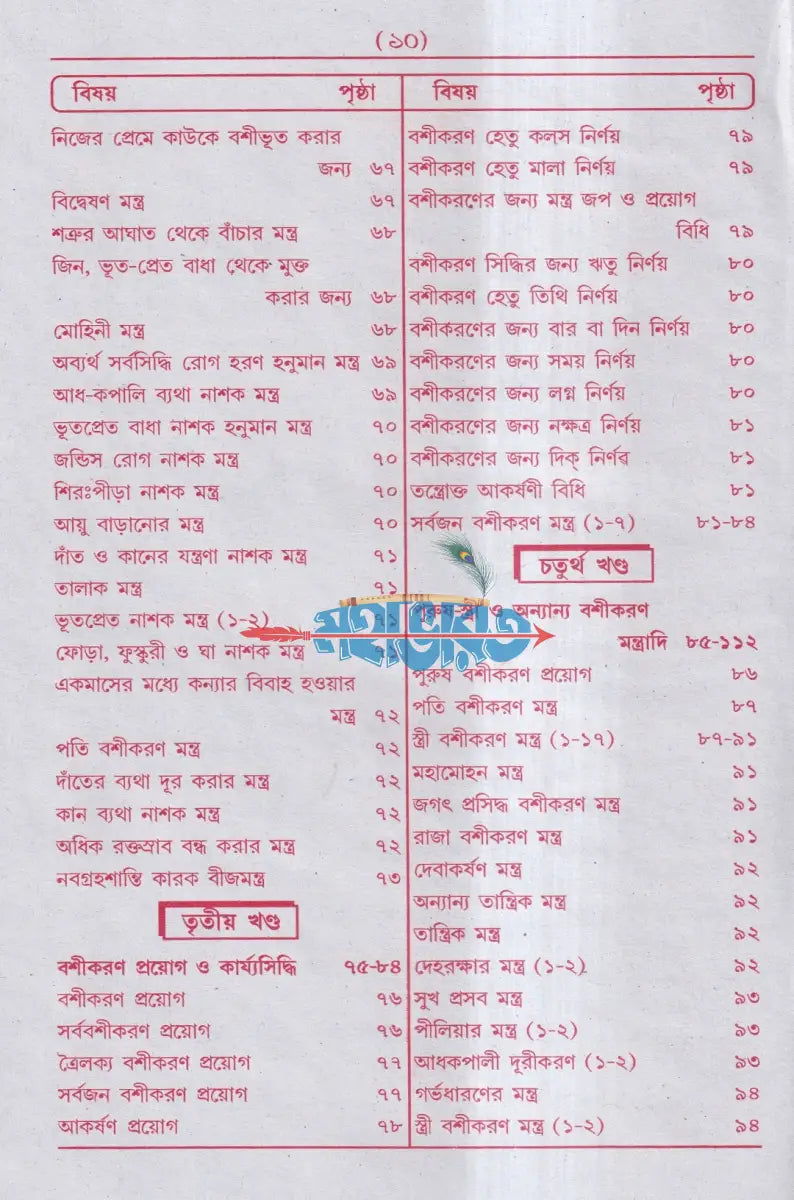 (১০)
বিষয় পৃষ্ঠা
নিজের প্রেমে কাউকে বশীভূত করার
জন্য ৬৭
বিদ্বেষণ মন্ত্র ৬৭
শত্রুর আঘাত থেকে বাঁচার মন্ত্র ৬৮
জিন, ভূত-প্রেত বাধা থেকে মুক্ত
করার জন্য ৬৮
মোহিনী মন্ত্র ৬৮
অব্যর্থ সর্বসিদ্ধি রোগ হরণ হনুমান মন্ত্র ৬৯
আধ-কপালি ব্যথা নাশক মন্ত্র ৬৯
ভূতপ্রেত বাধা নাশক হনুমান মন্ত্র ৭০
জন্ডিস রোগ নাশক মন্ত্র ৭০
শিরঃপীড়া নাশক মন্ত্র ৭০
আয়ু বাড়ানোর মন্ত্র ৭০
দাঁত ও কানের যন্ত্রণা নাশক মন্ত্র ৭১
তালাক মন্ত্র ৭১
ভূতপ্রেত নাশক মন্ত্র (১-২) ৭১
ফোড়া, ফুস্কুরী ও ঘা নাশক মন্ত্র ৭১
একমাসের মধ্যে কন্যার বিবাহ হওয়ার
মন্ত্র ৭২
পতি বশীকরণ মন্ত্র ৭২
দাঁতের ব্যথা দূর করার মন্ত্র ৭২
কান ব্যথা নাশক মন্ত্র ৭২
অধিক রক্তস্রাব বন্ধ করার মন্ত্র ৭২
নবগ্রহশান্তি কারক বীজমন্ত্র ৭৩
তৃতীয় খণ্ড
বশীকরণ প্রয়োগ ও কার্য্যসিদ্ধি ৭৫-৮৪
বশীকরণ প্রয়োগ ৭৬
সর্ববশীকরণ প্রয়োগ ৭৬
ত্রৈলক্য বশীকরণ প্রয়োগ ৭৭
সর্বজন বশীকরণ প্রয়োগ ৭৭
আকর্ষণ প্রয়োগ ৭৮
বিষয় পৃষ্ঠা
বশীকরণ হেতু কলস নির্ণয় ৭৯
বশীকরণ হেতু মালা নির্ণয় ৭৯
বশীকরণের জন্য মন্ত্র জপ ও প্রয়োগ
বিধি ৭৯
বশীকরণ সিদ্ধির জন্য ঋতু নির্ণয় ৮০
বশীকরণ হেতু তিথি নির্ণয় ৮০
বশীকরণের জন্য বার বা দিন নির্ণয় ৮০
বশীকরণের জন্য সময় নির্ণয় ৮০
বশীকরণের জন্য লগ্ন নির্ণয় ৮০
বশীকরণের জন্য নক্ষত্র নির্ণয় ৮১
বশীকরণের জন্য দিক্ নির্ণব ৮১
তন্ত্রোক্ত আকর্ষণী বিধি ৮১
সর্বজন বশীকরণ মন্ত্র (১-৭) ৮১-৮৪
চতুর্থ খণ্ড
পুরুষ-স্ত্রী ও অন্যান্য বশীকরণ
মন্ত্রাদি ৮৫-১১২
পুরুষ বশীকরণ প্রয়োগ ৮৬
পতি বশীকরণ মন্ত্র ৮৭
স্ত্রী বশীকরণ মন্ত্র (১-১৭) ৮৭-৯১
মহামোহন মন্ত্র ৯১
জগৎ প্রসিদ্ধ বশীকরণ মন্ত্র ৯১
রাজা বশীকরণ মন্ত্র ৯১
দেবাকর্ষণ মন্ত্র ৯২
অন্যান্য তান্ত্রিক মন্ত্র ৯২
তান্ত্রিক মন্ত্র ৯২
দেহরক্ষার মন্ত্র (১-২) ৯২
সুখ প্রসব মন্ত্র ৯৩
পীলিয়ার মন্ত্র (১-২) ৯৩
আধকপালী দূরীকরণ (১-২) ৯৩
গর্ভধারণের মন্ত্র ৯৪
স্ত্রী বশীকরণ মন্ত্র (১-২) ৯৪
মহাভারত